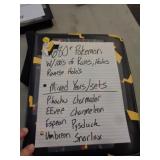 350+ Pokemon
w/100s of Rares, Holos
Reverse Holo's
• Mixed Years/sets
Pikachu Charmander
EEvee Charmeleon
Espeon Psyduck
Umbreon Snorlax